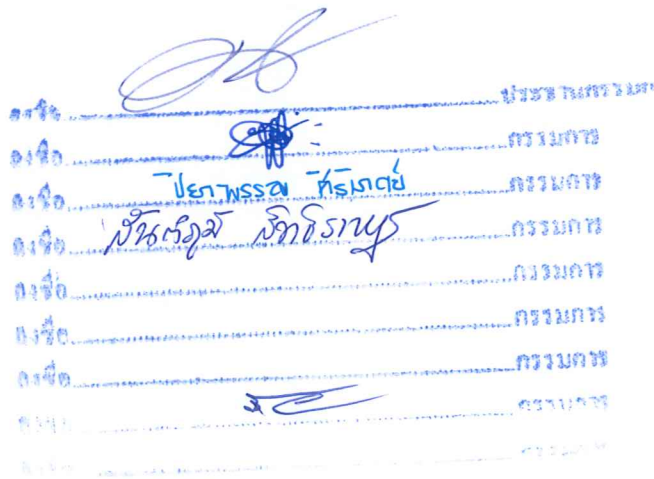 ลงชื่อ ประธานกรรมการ
ลงชื่อ กรรมการ
ลงชื่อ ปิยาพรรณ กรรมการ
ลงชื่อ สันต์ภูมิ กรรมการ
ลงชื่อ กรรมการ
ลงชื่อ กรรมการ
ลงชื่อ กรรมการ
ลงชื่อ กรรมการ
ลงชื่อ กรรมการ